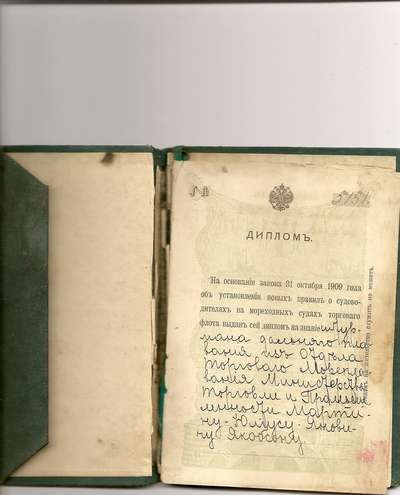 № 5757.
ДИПЛОМЪ.
На основаніи закона 31 октября 1909 года
объ установленіи новыхъ правилъ о судово-
дителяхъ на мореходныхъ судахъ торговаго
флота выданъ сей дипломъ на званіе штур-
мана дальняго пла-
ванія, изъ Отдѣла
Торговаго Морепла-
ванія Министерства
Торговли и Промыш-
ленности Марти-
ну-Юліусу Янови-
чу Якобсону.
служить не можетъ.